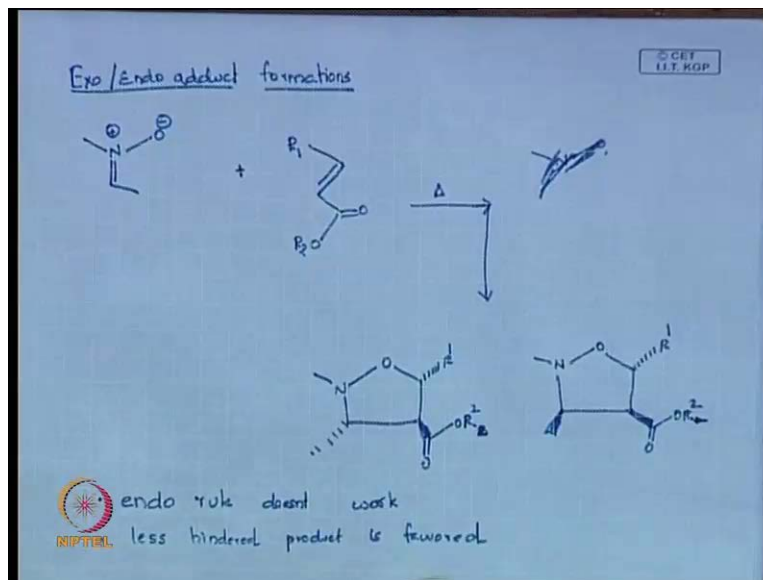 Exo/Endo adduct formations
© CET
I.I.T. KGP
⊕ ⊖
N O
+
R1
O
R2O
Δ
N O R1
OR2
O
N O R1
OR2
O
endo rule doesnt work
less hindered product is favored
NPTEL